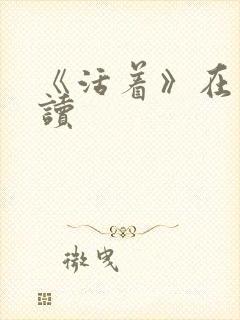 《活着》在
讀
微曳